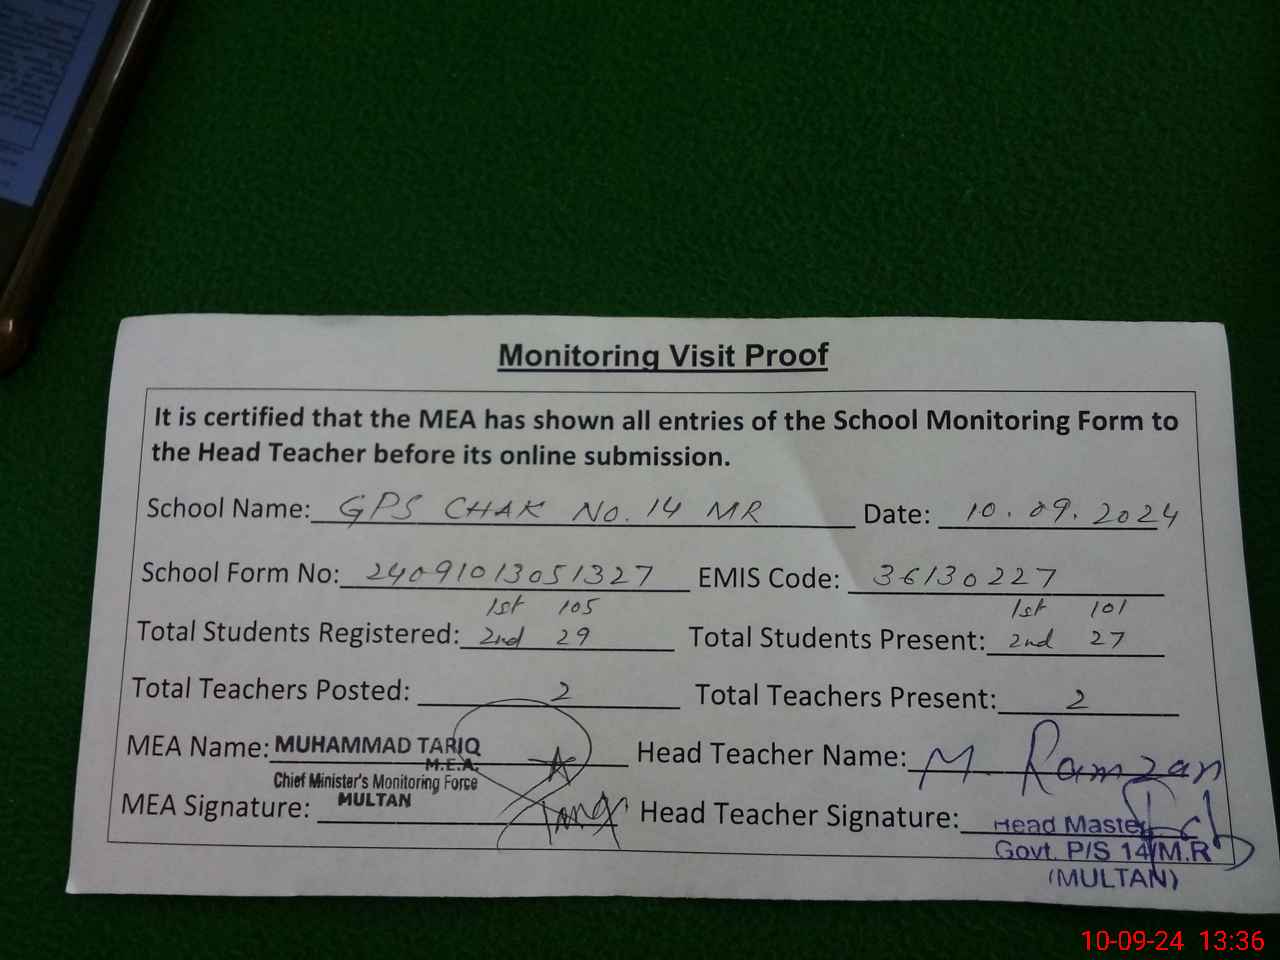 Monitoring Visit Proof
It is certified that the MEA has shown all entries of the School Monitoring Form to
the Head Teacher before its online submission.
School Name: GPS CHAK No. 14 MR Date: 10.09.2024
School Form No: 24091013051327 EMIS Code: 36130227
1st 105 1st 101
Total Students Registered: 2nd 29 Total Students Present: 2nd 27
Total Teachers Posted: 2 Total Teachers Present: 2
MEA Name: MUHAMMAD TARIQ Head Teacher Name: M. Ramzan
M.E.A.
Chief Minister's Monitoring Force
MULTAN
MEA Signature: Head Teacher Signature:
Head Master
Govt. P/S 14/M.R
(MULTAN)
10-09-24 13:36